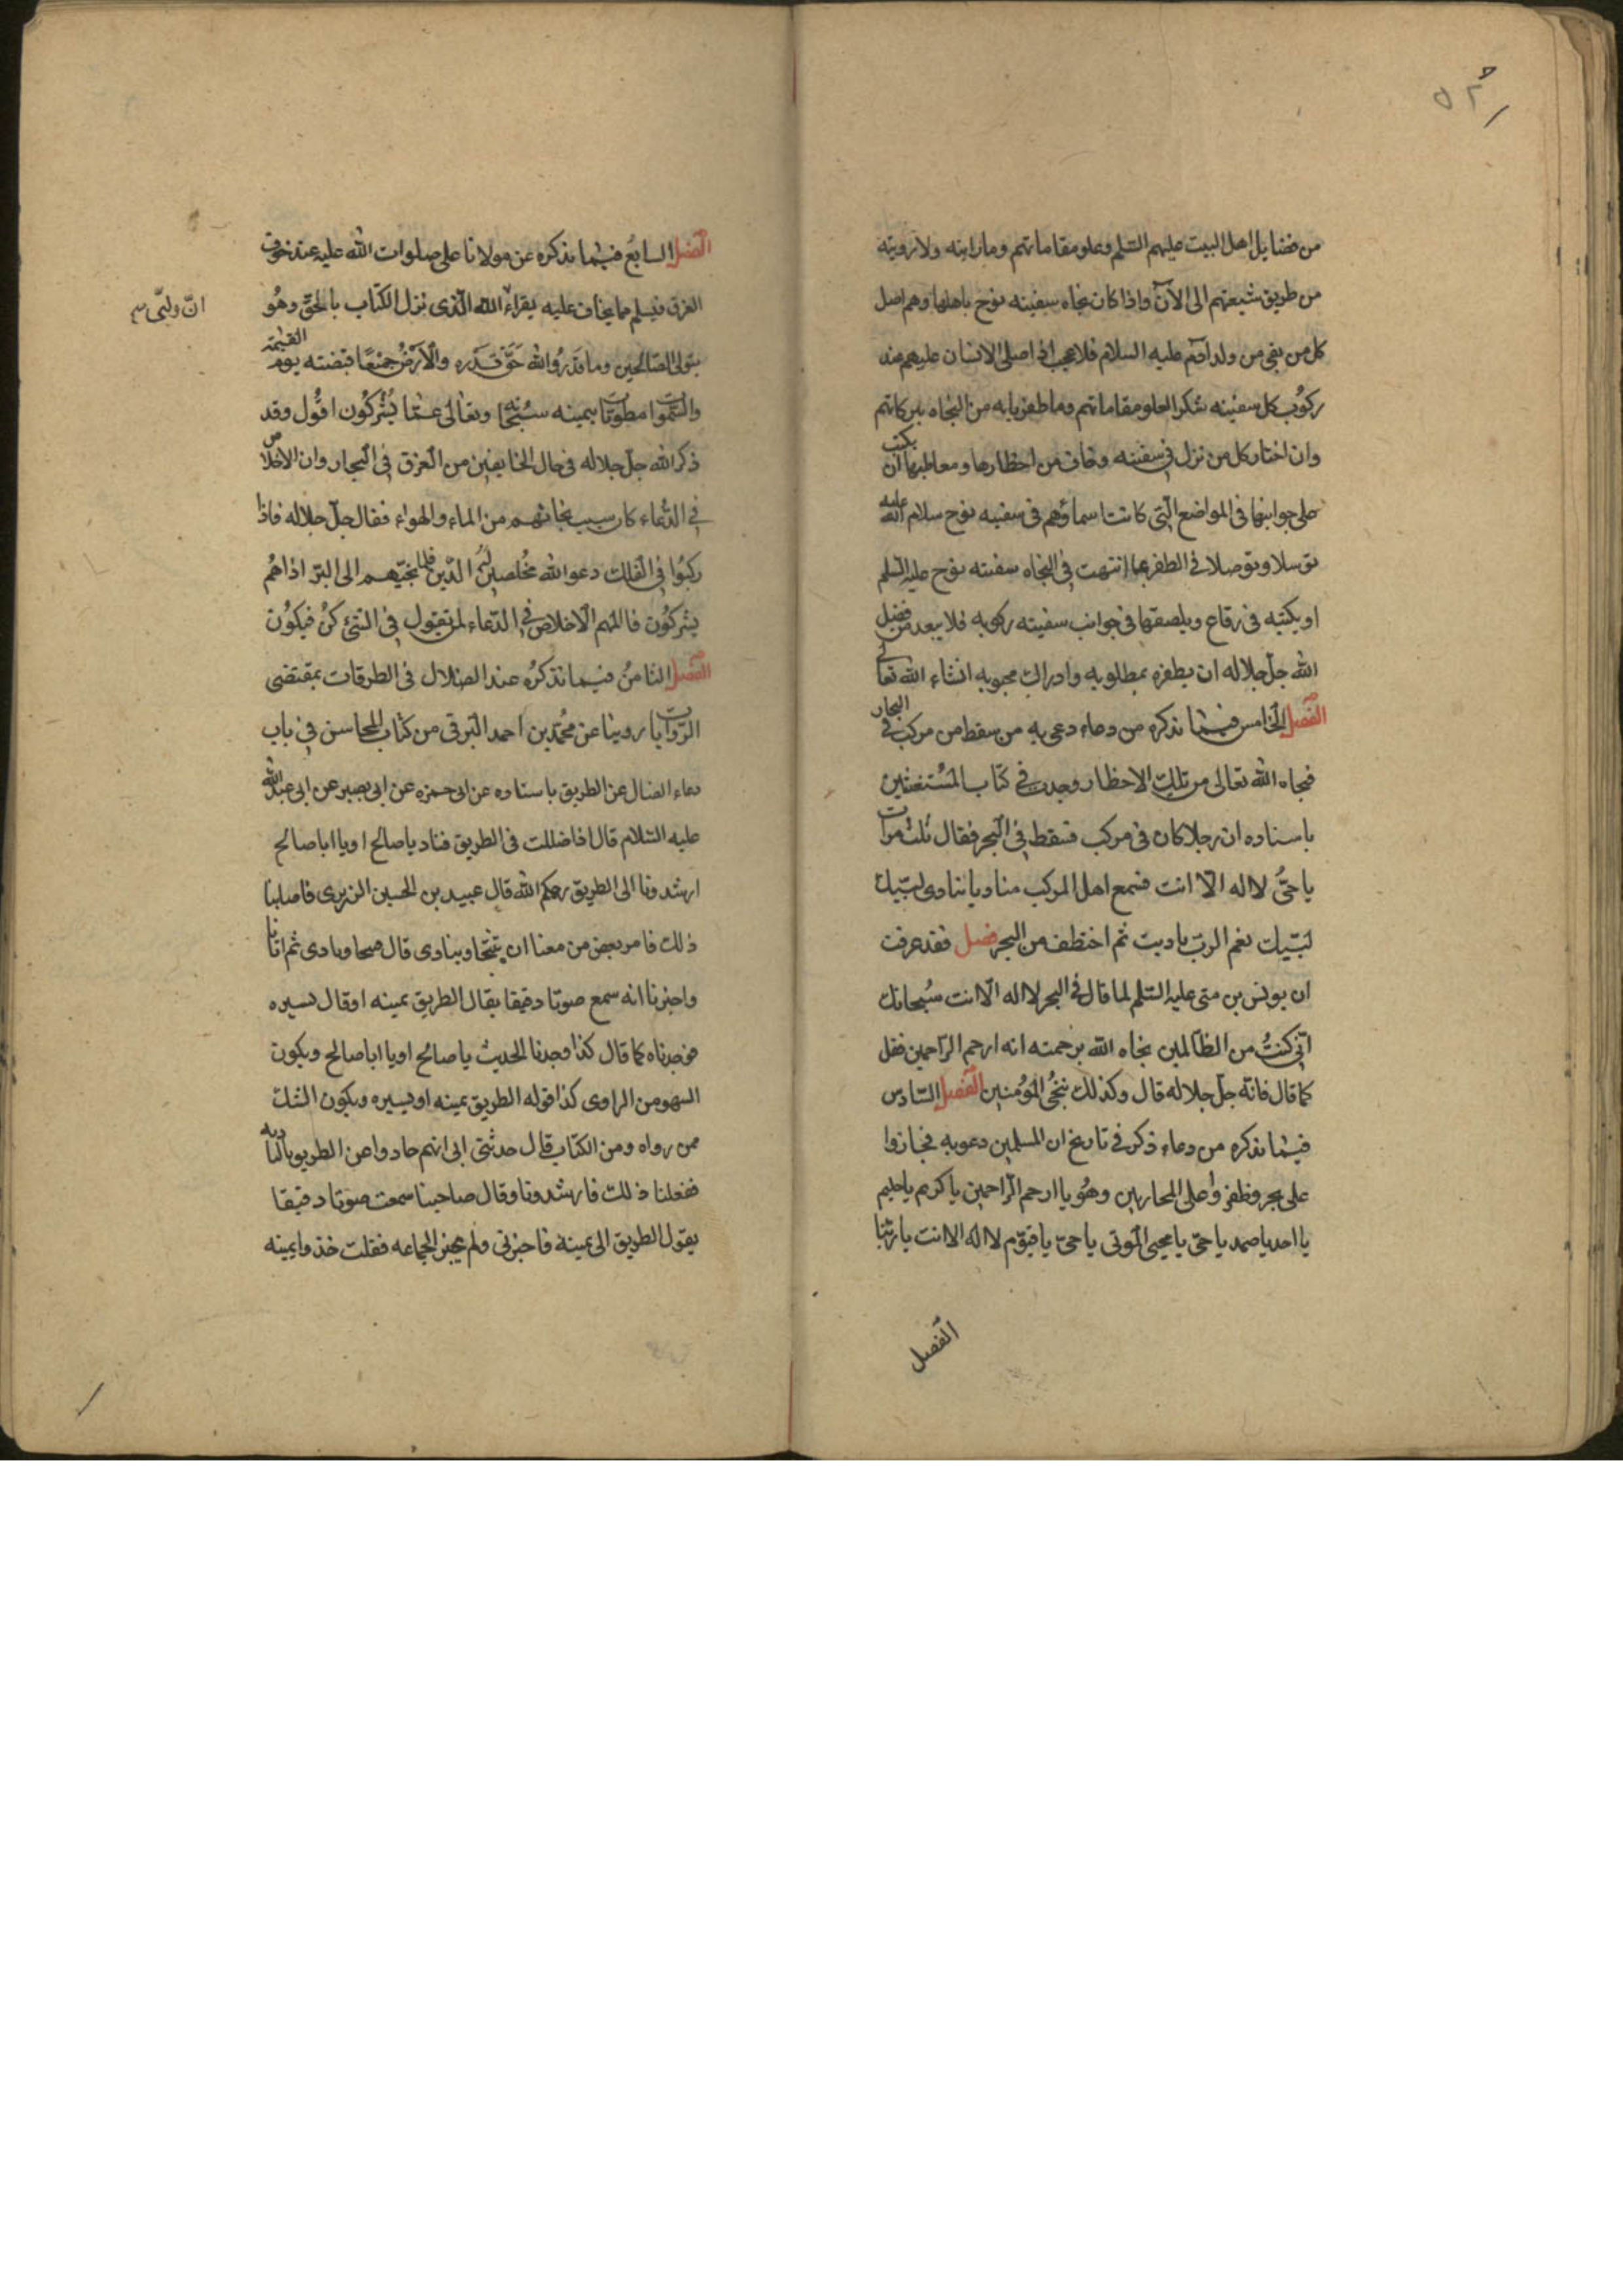 من فضايل اهل البيت عليهم السّلم وعلو مقاماتهم وما رايته ولا رويته
من طريق شيعتهم الى الآن واذا كان نجاه سفينه نوح باهلها وهم اصل
كل من بقى من ولد آدم عليه السلام فلا عجب اذا صلى الانسان عليهم عند
ركوُب كل سفينه شكرا لعلو مقاماتهم وما ظفرنا به من النجاه ببركاتهم
وان اختار كل من نزل فى سفينه وخاف من اخطارها ومعاطبها ان يكتب
على جوانبها فى المواضع الّتى كانت اسماؤهم فى سفينه نوح سلام الله عليه
توسلا وتوصلا فى الظفر بما انتهت فى النجاه سفينته نوح عليه السّلم
او يكتبه فى رقاع ويلصقها فى جوانب سفينته ركوبه فلا يبعد من فضل
الله جلّ جلاله ان يظفره بمطلوبه وادراك محبوبه انشاء الله تعالى
الفصل الخامس فيما نذكره من دعاء دعى به من سقط من مركب فى البحار
فنجاه الله تعالى من تلك الاخطار وجدت فى كتاب المستغيثين
باسناده ان رجلا كان فى مركب فسقط فى البحر فقال ثلث مرات
يا حىُّ لا اله الّا انت فسمع اهل المركب مناديا ينادى لبّيك
لبّيك نعم الربّ ناديت ثم اختطف من البحر فصل فقد عرفت
ان يونس بن متى عليه السّلم لما قال فى البحر لا اله الّا انت سُبحانك
انّى كنتُ من الظالمين نجاه الله برحمته انه ارحم الرّاحمين فقل
كما قال فانّه جلّ جلاله قال وكذلك ننجى المؤمنين الفصل السّادس
فيما نذكره من دعاء ذكر فى تاريخ ان المسلمين دعوبه فجازوا
على بحر وظفروا على المحاربين وهُو يا ارحم الرّاحمين يا كريم يا حليم
يا احد يا صمد يا حىّ يا محيى الموتى يا حىّ يا قيّوم لا اله الا انت يا ربّنا
الفصل
الفصل السابع فيما نذكره عن مولانا على صلوات الله عليه عند خوف
الغرق فيسلم مما يخاف عليه يقراء الله الّذى نزل الكتاب بالحقّ وهُو
انّ وليّى
يتولى الصّالحين وما قَدَرُوا الله حَقَّ قَدَره والْاَرْضُ جَميعًا قبضته يوم القيٰمة
والسّموات مطويات بيمينه سُبْحانه وتعالى عمّا يُشْركُون اقُول وقد
ذكر الله جلّ جلاله فى حال الخايفين من الغرق فى البحار وان الاخلاص
فى الدّعاء كان سبب نجاتهم من الماء والهواء فقال جلّ جلاله فاذا
ركبُوا فى الفلك دعوا الله مُخلصين لهُ الدّين فلما نجّيهم الى البرّ اذا هُم
يشركُون فالمهم الاخلاص فى الدّعاء لمن يقول فى الشئ كنُ فيكُون
الفصل الثامنُ فيما نذكرُه عند الضلال فى الطرقات بمقتضى
الرّوايات روينا عن مُحمّد بن احمد البَرقى من كتاب المحاسن فى باب
دعاء الضال عن الطريق باسناده عن ابى حمزه عن ابى بصير عن ابى عبد الله
عليه السّلام قال اذا ضللت فى الطريق فناد يا صالح او يا ابا صالح
ارشدونا الى الطريق رحمكم الله قال عبيد بن الحسين الزيزى فاصابنا
ذلك فامر بعض من معنا ان يتنحّا وينادى قال فتنحا ونادى ثم اتانا
واخبرنا انه سمع صوتا دقيقا يقال الطريق يمينه او قال يسيره
فوجدناه كما قال كذا وجدنا الحديث يا صالح او يا ابا صالح ويكون
السهو من الراوى كذا قوله الطريق يمينه او يسيره ويكون الشك
ممن رواه ومن الكتاب قال حدثنى ابى انهم حادوا عن الطريق بالباديه
ففعلنا ذلك فارشدونا وقال صاحبنا سمعت صوتا دقيقا
يقول الطريق الى يمينة فاخبرنى ولم يخبر الجماعه فقلت خذوا يمينه